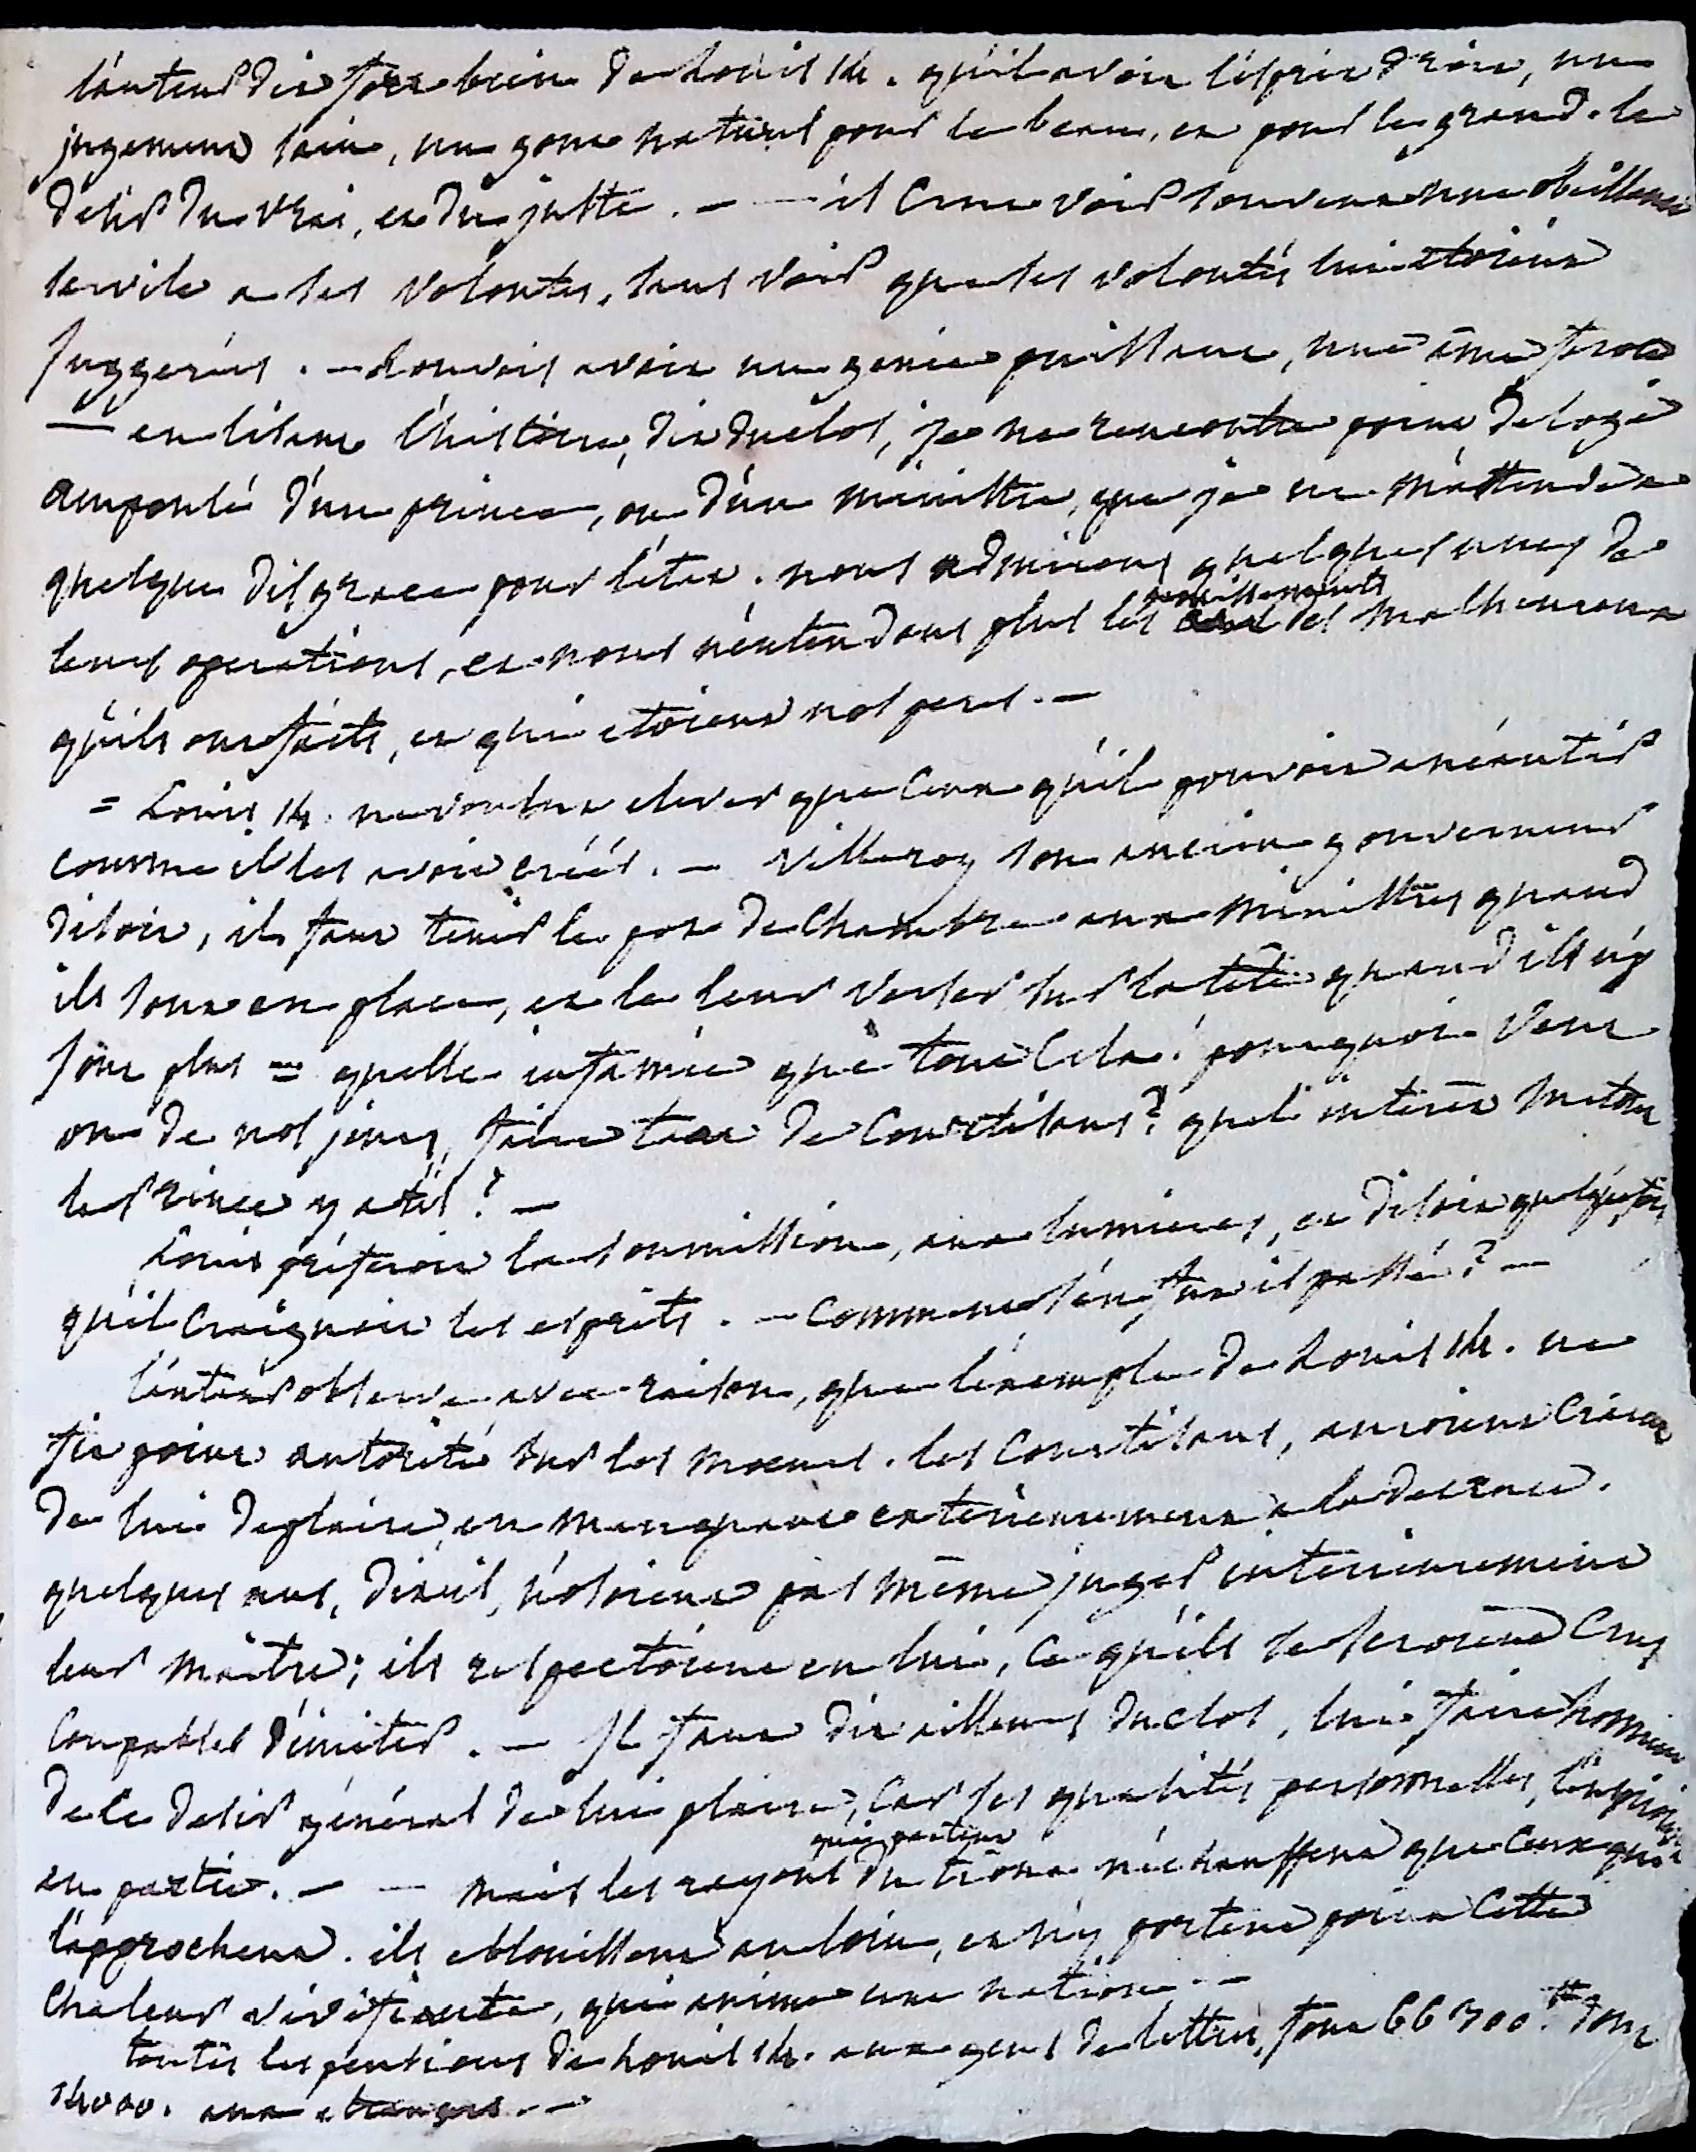 l'auteur dit fort bien de Louis 14. qu'il avoit l'esprit droit, un
jugement sain, un gout naturel pour le beau, et pour le grand. le
desir du vrai, et du juste. — — il crut voir souvent une obeissance
servile a ses volontes, sans voir que ses volontés lui etoient
suggerées. — Louvois avoit un genie puissant, une ame feroce
— en lisant l'histoire, dit duclos, je ne rencontre point d'eloge
ampoulé d'un prince, ou d'un ministre, que je ne m'attende a
quelque disgrace pour l'état. nous admirons quelques unes de
leurs operations, et nous n'entendons plus les gemissements des malheureux
qu'ils ont faits, et qui etoient nos peres. —
= Louis 14. ne voulut elever que ceux qu'il pouvoit anéantir
comme il les avoit créés. — Villeroy son ancien gouverneur
disoit, il faut tenir le pot de chambre aux ministres quand
ils sont en place, et le leur verser sur la tête quand ils n'y
sont plus = quelle infamie que tout cela! pourquoi veut
on de nos jours, faire tant de courtisans? quel intérêt surtout
le Prince y a t'il? —
Louis préferoit la soumission, aux lumieres, et disoit quelquefois
qu'il craignoit les esprits. — comment s'en fut il passé? —
l'auteur observe avec raison, que l'exemple de Louis 14. ne
fit point autorité sur les moeurs. les courtisans, auroient craint
de lui deplaire, en manquant exterieurement a la decence.
quelques uns, dit il, n'osoient pas même juger interieurement
leur maître; ils respectoient en lui, ce qu'ils se seroient crus
coupables d'imiter. — Il faut dit ailleurs duclos, lui faire honneur
de ce desir général de lui plaire, car ses qualités personnelles, l'inspiroient
en partie. — — mais les rayons qui partent du trône n'échauffent que ceux qui
l'approchent. ils eblouissent au loin, et n'y portent point cette
chaleur vivifiante, qui anime une nation. —
toutes les pensions de Louis 14. aux gens de lettres, font 66 300.tt dont
14000. aux etrangers. —